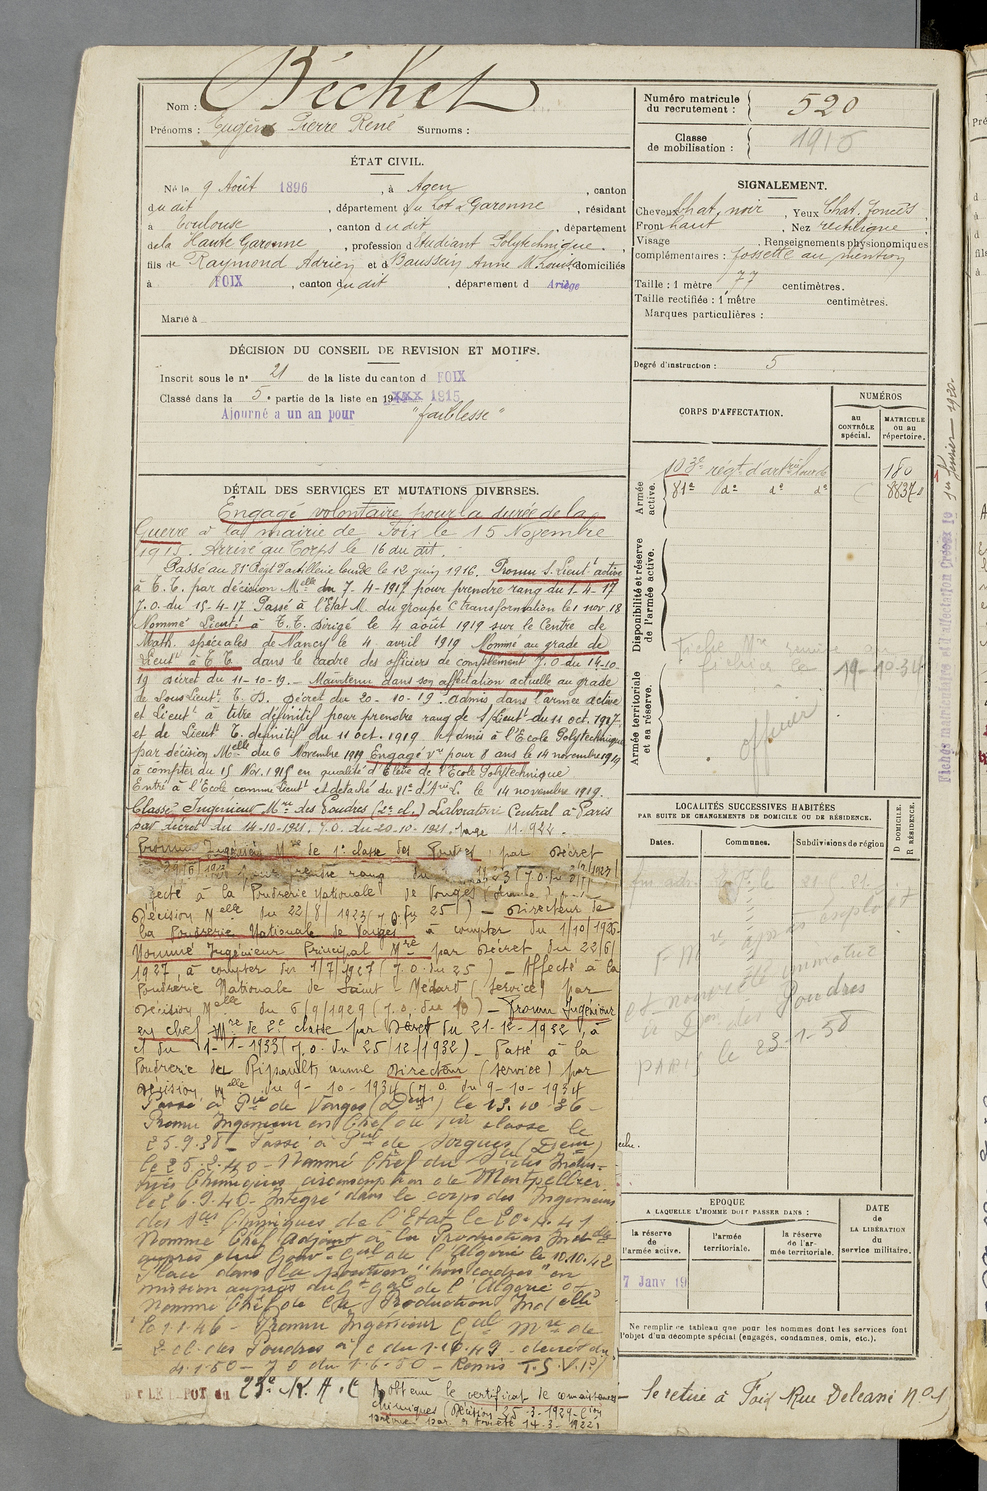 Nom : Béchet
Prénoms : Eugène Pierre René Surnoms :
ÉTAT CIVIL.
Né le 9 Août 1896, à Agen, canton
du dit, département du Lot & Garonne, résidant
à Toulouse, canton du dit, département
de la Haute Garonne, profession d'Etudiant Polytechnique.
fils de Raymond Adrien et d Baussein Anne M. Louise domiciliés
à FOIX, canton du dit, département d Ariège
Marié à
DÉCISION DU CONSEIL DE REVISION ET MOTIFS.
Inscrit sous le n° 21 de la liste du canton d FOIX
Classé dans la 5e partie de la liste en 19 1915
Ajourné a un an pour "faiblesse"
DÉTAIL DES SERVICES ET MUTATIONS DIVERSES.
Engagé volontaire pour la durée de la
Guerre à la mairie de Foix le 15 Novembre
1915. Arrivé au Corps le 16 du dit.
Passé au 81e Régt d'artillerie lourde le 12 juin 1916. Promu S. Lieutt active
à T.T. par décision Melle du 7-4-1917 pour prendre rang du 1-4-17
J.O. du 15-4-17 Passé à l'Etat M. du groupe C transformation le 1 nov 18
Nommé Lieutt à T.T. Dirigé le 4 août 1919 sur le Centre de
Math. spéciales de Nancy le 4 avril 1919 Nommé au grade de
Lieutt à T.T. dans le cadre des officiers de complément J.O. du 14-10-
19 décret du 11-10-19. - Maintenu dans son affectation actuelle au grade
de Sous Lieutt. T.D. Décret du 20-10-19. admis dans l'armée active
et Lieutt à titre définitif pour prendre rang de S/Lieutt du 11 oct. 1917.
et de Lieutt T. définitif du 11 oct. 1919 Admis à l'Ecole Polytechnique
par décision Melle du 6 Novembre 1919 Engagé Vre pour 8 ans le 14 novembre 1919
à compter du 15 Nov. 1915 en qualité d'Elève de l'Ecole Polytechnique
Entré à l'Ecole comme Lieutt et détaché du 81e d'Arie L. le 14 novembre 1919.
Classé Ingénieur Mre des Poudres (2e cl.) Laboratoire Central à Paris
par décret du 14-10-1921. J.O. du 20-10-1921. page 11.922.
Promu Ingénieur Mre de 1e classe des Poudres par Décret
pour prendre rang du
à la Poudrerie Nationale de Vonges
Décision Melle du 22/8/1923 (J.O. du 25/) - Directeur de
la Poudrerie Nationale de Vonges à compter du 1/10/1925-
Nommé Ingénieur Principal Mre par Décret du 22/6/
1927, à compter du 1/7/1927 (J.O. du 25) - Affecté à la
Poudrerie Nationale de Saint-Médard (Service) par
Décision Melle du 6/9/1929 (J.O. du 10) - Promu Ingénieur
en chef Mre de 2e classe par Décret du 21-12-1932, à
c du 1-1-1933 (J.O. du 25/12/1932) - Passé à la
Poudrerie du Ripault comme Directeur (Service) par
Décision Melle du 9-10-1934 (J.O. du 9-10-1934
Passé à Pie de Vonges (Deur) le 13.10-36-
Promu Ingénieur en Chef de 1ère classe le
25.9.38- Passé à Pie de Sorgues (Deur)
le 25.2.40- Nommé Chef du des Indus-
tries Chimiques circonscription de Montpellier
le 26.9.40- Intégré dans le corps des Ingénieurs
des Ies Chimiques de l'Etat le 20.4.41
Nommé Chef Adjoint à la Production Indelle
auprès du Gouv- Gal de l'Algérie le 10.10.42
Placé dans la position "hors cadres" en
mission auprès du Gt Gal de l'Algérie et
Nommé Chef de la Production Indelle
le 1.1.46- Promu Ingénieur Gal Mre de
2e cl. des Poudres à/c du 1-10-49- décret du
4.1.50- J.O du 1.6.50- Remis T.S.V.P/
DÉPOT du 23e R.A.C A obtenu le certificat de connaissances
chimiques (Décision 25-3-1922-
14-3-1922)
Numéro matricule du recrutement : 520
Classe de mobilisation : 1916
SIGNALEMENT.
Cheveux Chat. noir, Yeux Chat. foncés,
Front haut, Nez rectiligne
Visage , Renseignements physionomiques
complémentaires : fossette au menton
Taille : 1 mètre 77 centimètres.
Taille rectifiée : 1 mètre centimètres.
Marques particulières :
Degré d'instruction : 5
CORPS D'AFFECTATION.
NUMÉROS
au CONTRÔLE spécial.
MATRICULE ou au répertoire.
Armée active.
103e régt d'artrie lourde 180
81e do do do 8837
Disponibilité et réserve de l'armée active.
Fiche Mre remise au
fichier le 19-10-34
Armée territoriale et sa réserve.
officier
LOCALITÉS SUCCESSIVES HABITÉES
PAR SUITE DE CHANGEMENTS DE DOMICILE OU DE RÉSIDENCE.
Dates. Communes. Subdivisions de région D DOMICILE. R RÉSIDENCE.
F Mre après exploit
et nouvelle immatric
à Don des Poudres
PARIS le 23-1-58
EPOQUE
A LAQUELLE L'HOMME DOIT PASSER DANS :
la réserve de l'armée active.
l'armée territoriale.
la réserve de l'armée territoriale.
DATE de LA LIBÉRATION du service militaire.
7 Janv 19
Ne remplir ce tableau que pour les nommés dont les services font
l'objet d'un décompte spécial (engagés, condamnés, omis, etc.).
Se retire à Foix Rue Delcassé No 1